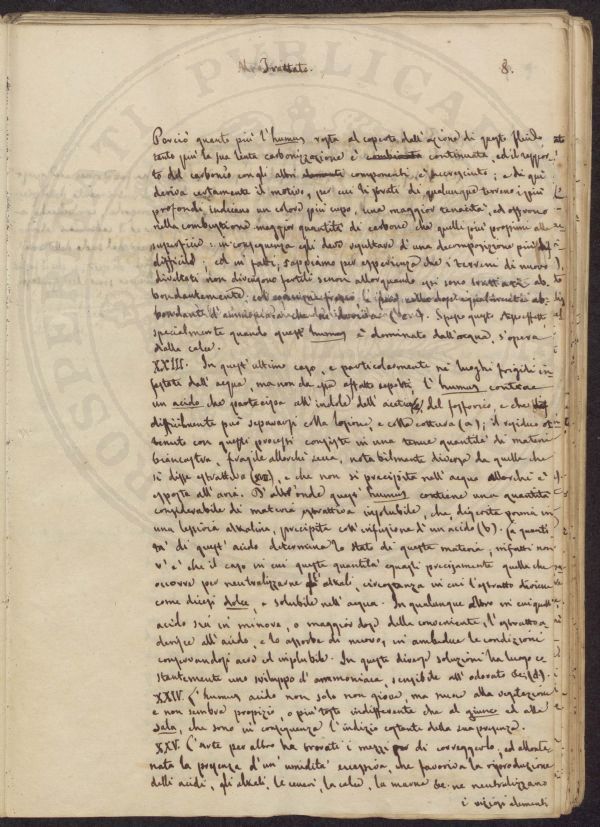 Al Trattato. 8.
Perciò quanto più l'humus resta al coperto dall'azione di questo fluido
tanto più la sua lenta carbonizzazione è continuata, ed il rappor-
to del carbonio con gli altri componenti, è accresciuto; e da qui
deriva certamente il motivo, per cui li strati di qualunque terreno i più
profondi, indicano un colore più cupo, una maggior tenacità, ed offrono
nella combustione maggior quantità di carbone che quelli più prossimi alla
superficie. in conseguenza egli deve risultare d'una decomposizione più
difficile; ed in fatti, sappiamo per esperienza che i terreni di nuovo
divoltati non divengono fertili se non allorquando essi sono trattati ab-
bondantemente
specialmente quando quest'humus è dominato dall'acqua, s'opera
dalla calce.
XXIII. In quest'ultimo caso, e particolarmente nei luoghi frigidi in-
festati dall'acqua, ma non da essa affatto coperti l'humus contiene
un acido che partecipa all'indole dell'aceto, e del fosforico, e che
difficilmente può separarsi colla lozione, e colla cottura (a); il residuo ot-
tenuto con questi processi consiste in una tenue quantità di materia
biancastra, fragile allorchè secca, notabilmente diversa da quella che
si disse estrattiva (XII), e che non si precipita nell'acqua allorchè è
esposta all'aria. D'altronde quest'humus contiene una quantità
considerabile di materia estrattiva insolubile, che, digerita prima in
una lisciva alkalina, precipita coll'infusione d'un acido (b). la quanti-
tà di quest'acido determina lo stato di questa materia, infatti non
v'è che il caso in cui questa quantità eguagli precisamente quella che
occorre per neutralizzarne gli alkali, circostanza in cui l'estratto diviene
come dicesi dolce, e solubile nell'acqua. In qualunque altro in cui quest'
acido sia in minore, o maggior dose della conveniente, l'estratto a-
derisce all'acido, e lo assorbe di nuovo, in ambedue le condizioni
conservandosi acido ed insolubile. In queste diverse soluzioni ha luogo co-
stantemente uno sviluppo d'ammoniaca, sensibile all'odorato
XXIV. L'humus acido non solo non giova, ma nuoce alla vegetazione
e non sembra propizio, o piuttosto indifferente che al giunco ed alla
sala, che sono in conseguenza l'indizio costante della sua presenza.
XXV. L'arte per altro ha trovati i mezzi di correggerlo, ed allonta-
nata la presenza d'un'umidità eccessiva, che favoriva la riproduzione
delli acidi, gli alkali, le ceneri, la calce, la marna &c. ne neutralizzano
i viziosi elementi